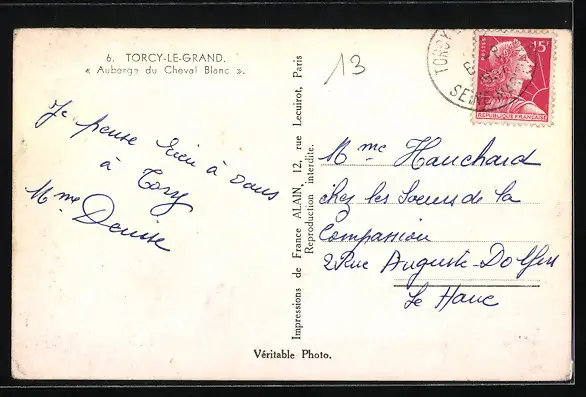 6. TORCY-LE-GRAND.
« Auberge du Cheval Blanc ».
Je pense bien à vous
à Torcy
Mme Denise
Impressions de France ALAIN, 12, rue Lecuirot, Paris
Reproduction interdite.
Véritable Photo.
13
TORCY
SEINE
POSTES
15F
REPUBLIQUE FRANÇAISE
Mme Hauchard
chez les Soeurs de la
Compassion
2 Rue Auguste-Dolfus
Le Havre